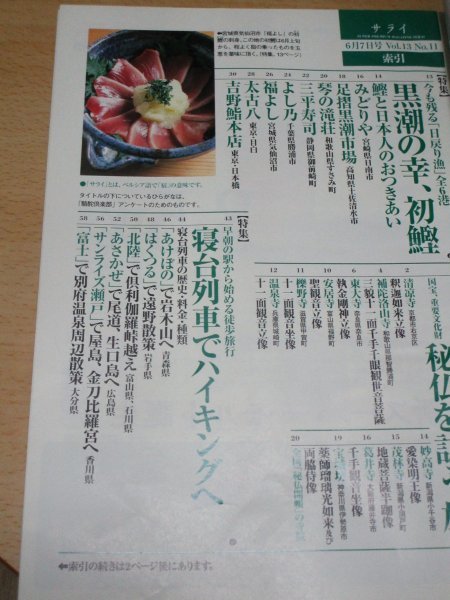 サライ
6月7日号 Vol.13 No.11
索引
[特集]
今も残る「日戻り漁」全6港
黒潮の幸、初鰹 13
鰹と日本人のおつきあい 14
みどりや 宮崎県日南市 16
足摺黒潮市場 高知県土佐清水市 18
琴の滝荘 和歌山県すさみ町 21
三平寿司 静岡県御前崎町 22
よし乃 千葉県勝浦市 24
福よし 宮城県気仙沼市 26
太古八 東京・目白 28
吉野鮨本店 東京・日本橋 30
「サライ」とは、ペルシア語で「宿」の意味です。
タイトルの下についているひらがなは、
アンケートのためのものです。
国宝、重要文化財
清凉寺 京都市右京区 2
釈迦如来立像
補陀洛山寺 和歌山県那智勝浦町 4
三貌十一面千手千眼観世音菩薩
東大寺 奈良県奈良市 6
執金剛神立像
安居寺 富山県福野町 10
聖観音立像
櫟野寺 滋賀県甲賀町 11
十一面観音坐像
温泉寺 兵庫県城崎町 12
十一面観音立像
妙高寺 新潟県小千谷市 14
愛染明王像
茂林寺
地蔵菩薩半跏像
葛井寺 大阪府藤井寺市 16
千手観音坐像
神奈川県伊勢原市 19
薬師瑠璃光如来及び
両脇侍像
[特集]
早朝の駅から始める徒歩旅行
寝台列車でハイキングへ 43
寝台列車の歴史・料金・種類 44
「あけぼの」で岩木山へ 青森県 46
「はくつる」で遠野散策 岩手県 48
「北陸」で倶利伽羅峠越え 富山県、石川県 50
「あさかぜ」で尾道、生口島へ 広島県 52
「サンライズ瀬戸」で屋島、金刀比羅宮へ 香川県 56
「富士」で別府温泉周辺散策 大分県 58
⬅索引の続きは2ページ後にあります。